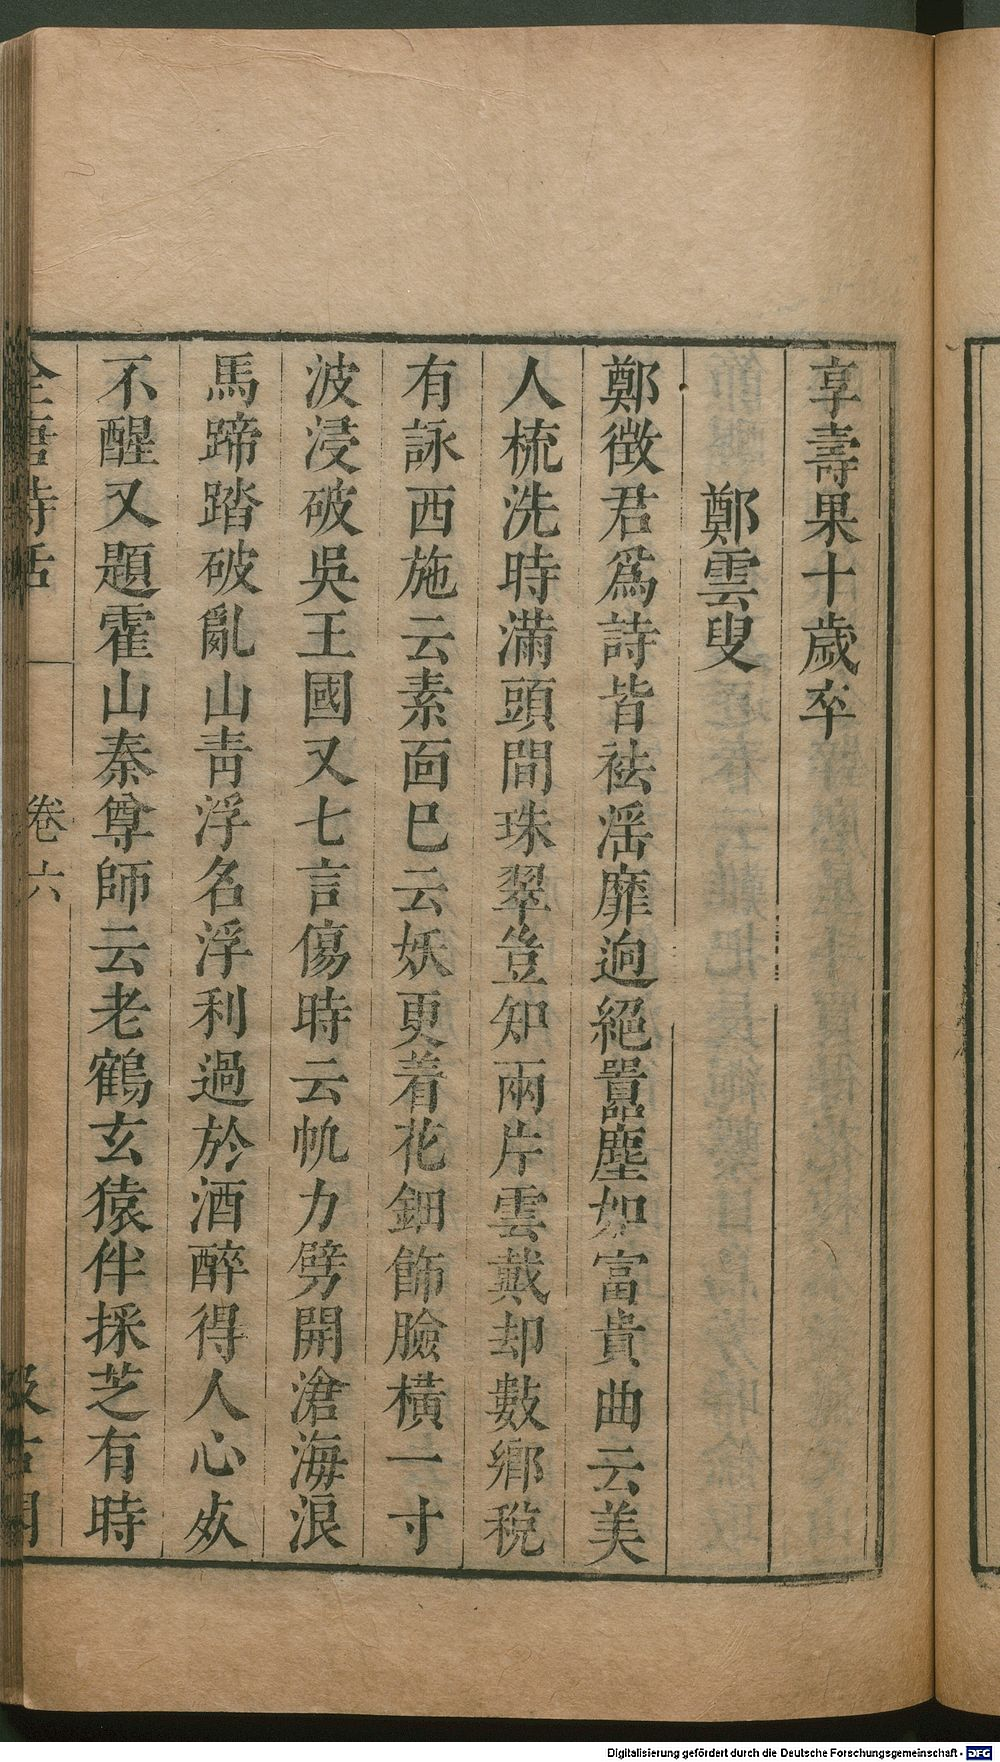 享壽果十歲卒
鄭雲叟
鄭徵君爲詩皆祛淫靡迥絕囂塵如富貴曲云美
人梳洗時滿頭間珠翠豈知兩片雲戴却數鄉稅
有詠西施云素面已云妖更着花鈿飾臉橫一寸
波浸破吳王國又七言傷時云帆力劈開滄海浪
馬蹄踏破亂山靑浮名浮利過於酒醉得人心歿
不醒又題霍山秦尊師云老鶴玄猿伴採芝有時
全唐詩話 卷六 汲古閣
Digitalisierung gefördert durch die Deutsche Forschungsgemeinschaft - DFG